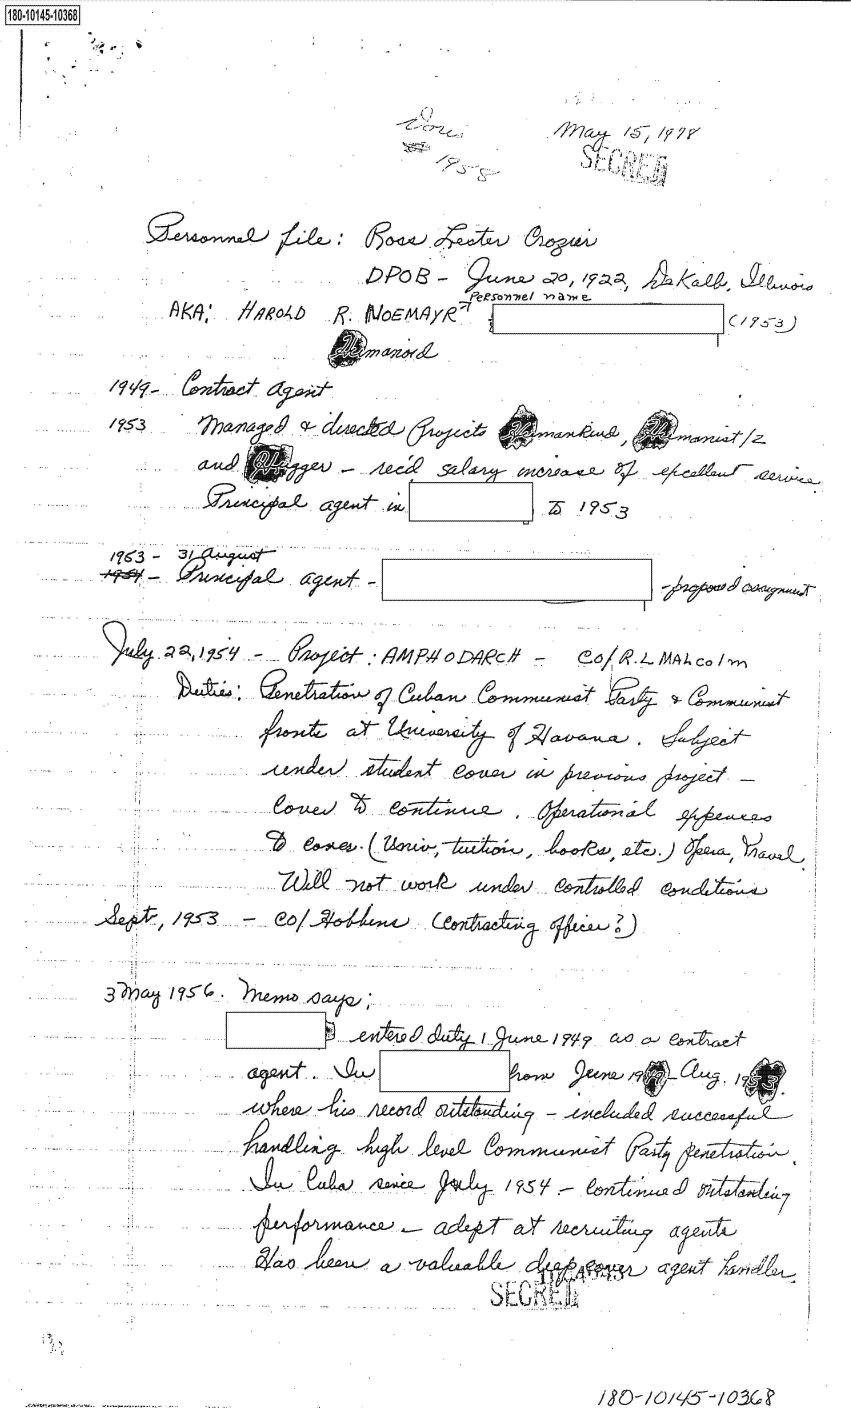 180-10145-10368
Doris
1958
May 15, 1978
SECRET
Personnel file: Ross Lester Crozier
DPOB - June 20, 1922, DeKalb, Illinois
Personnel name
AKA: HAROLD R. NOEMAYR (1953)
Humanoid
1949- Contract Agent
1953 Managed & directed Projects Humankind, Humanist/2
and Hugger - rec'd salary increase of excellent service
Principal agent in to 1953
1953 - 31 August
1954 - Principal agent - - proposed assignment
July 22, 1954 - Project: AMPHODARCH - CO/R.L MALcolm
Duties: Penetration of Cuban Communist Party & Communist
fronts at University of Havana. Subject
under student cover in previous project -
Cover to continue. Operational expences
to cover. (Univ, tuition, books, etc.) Opera, Travel.
Will not work under controlled conditions
Sept, 1953 - CO/ Hobbins (contracting officer?)
3 May 1956. Memo says:
entered duty 1 June 1949 as a contract
agent. In from June 1949 - Aug. 1953.
where his record outstanding - included successful
handling high level Communist Party penetration.
In Cuba since July 1954 - Continued outstanding
performance - adept at recruiting agents
Has been a valuable deep cover agent handler.
SECRET
180-10145-10368